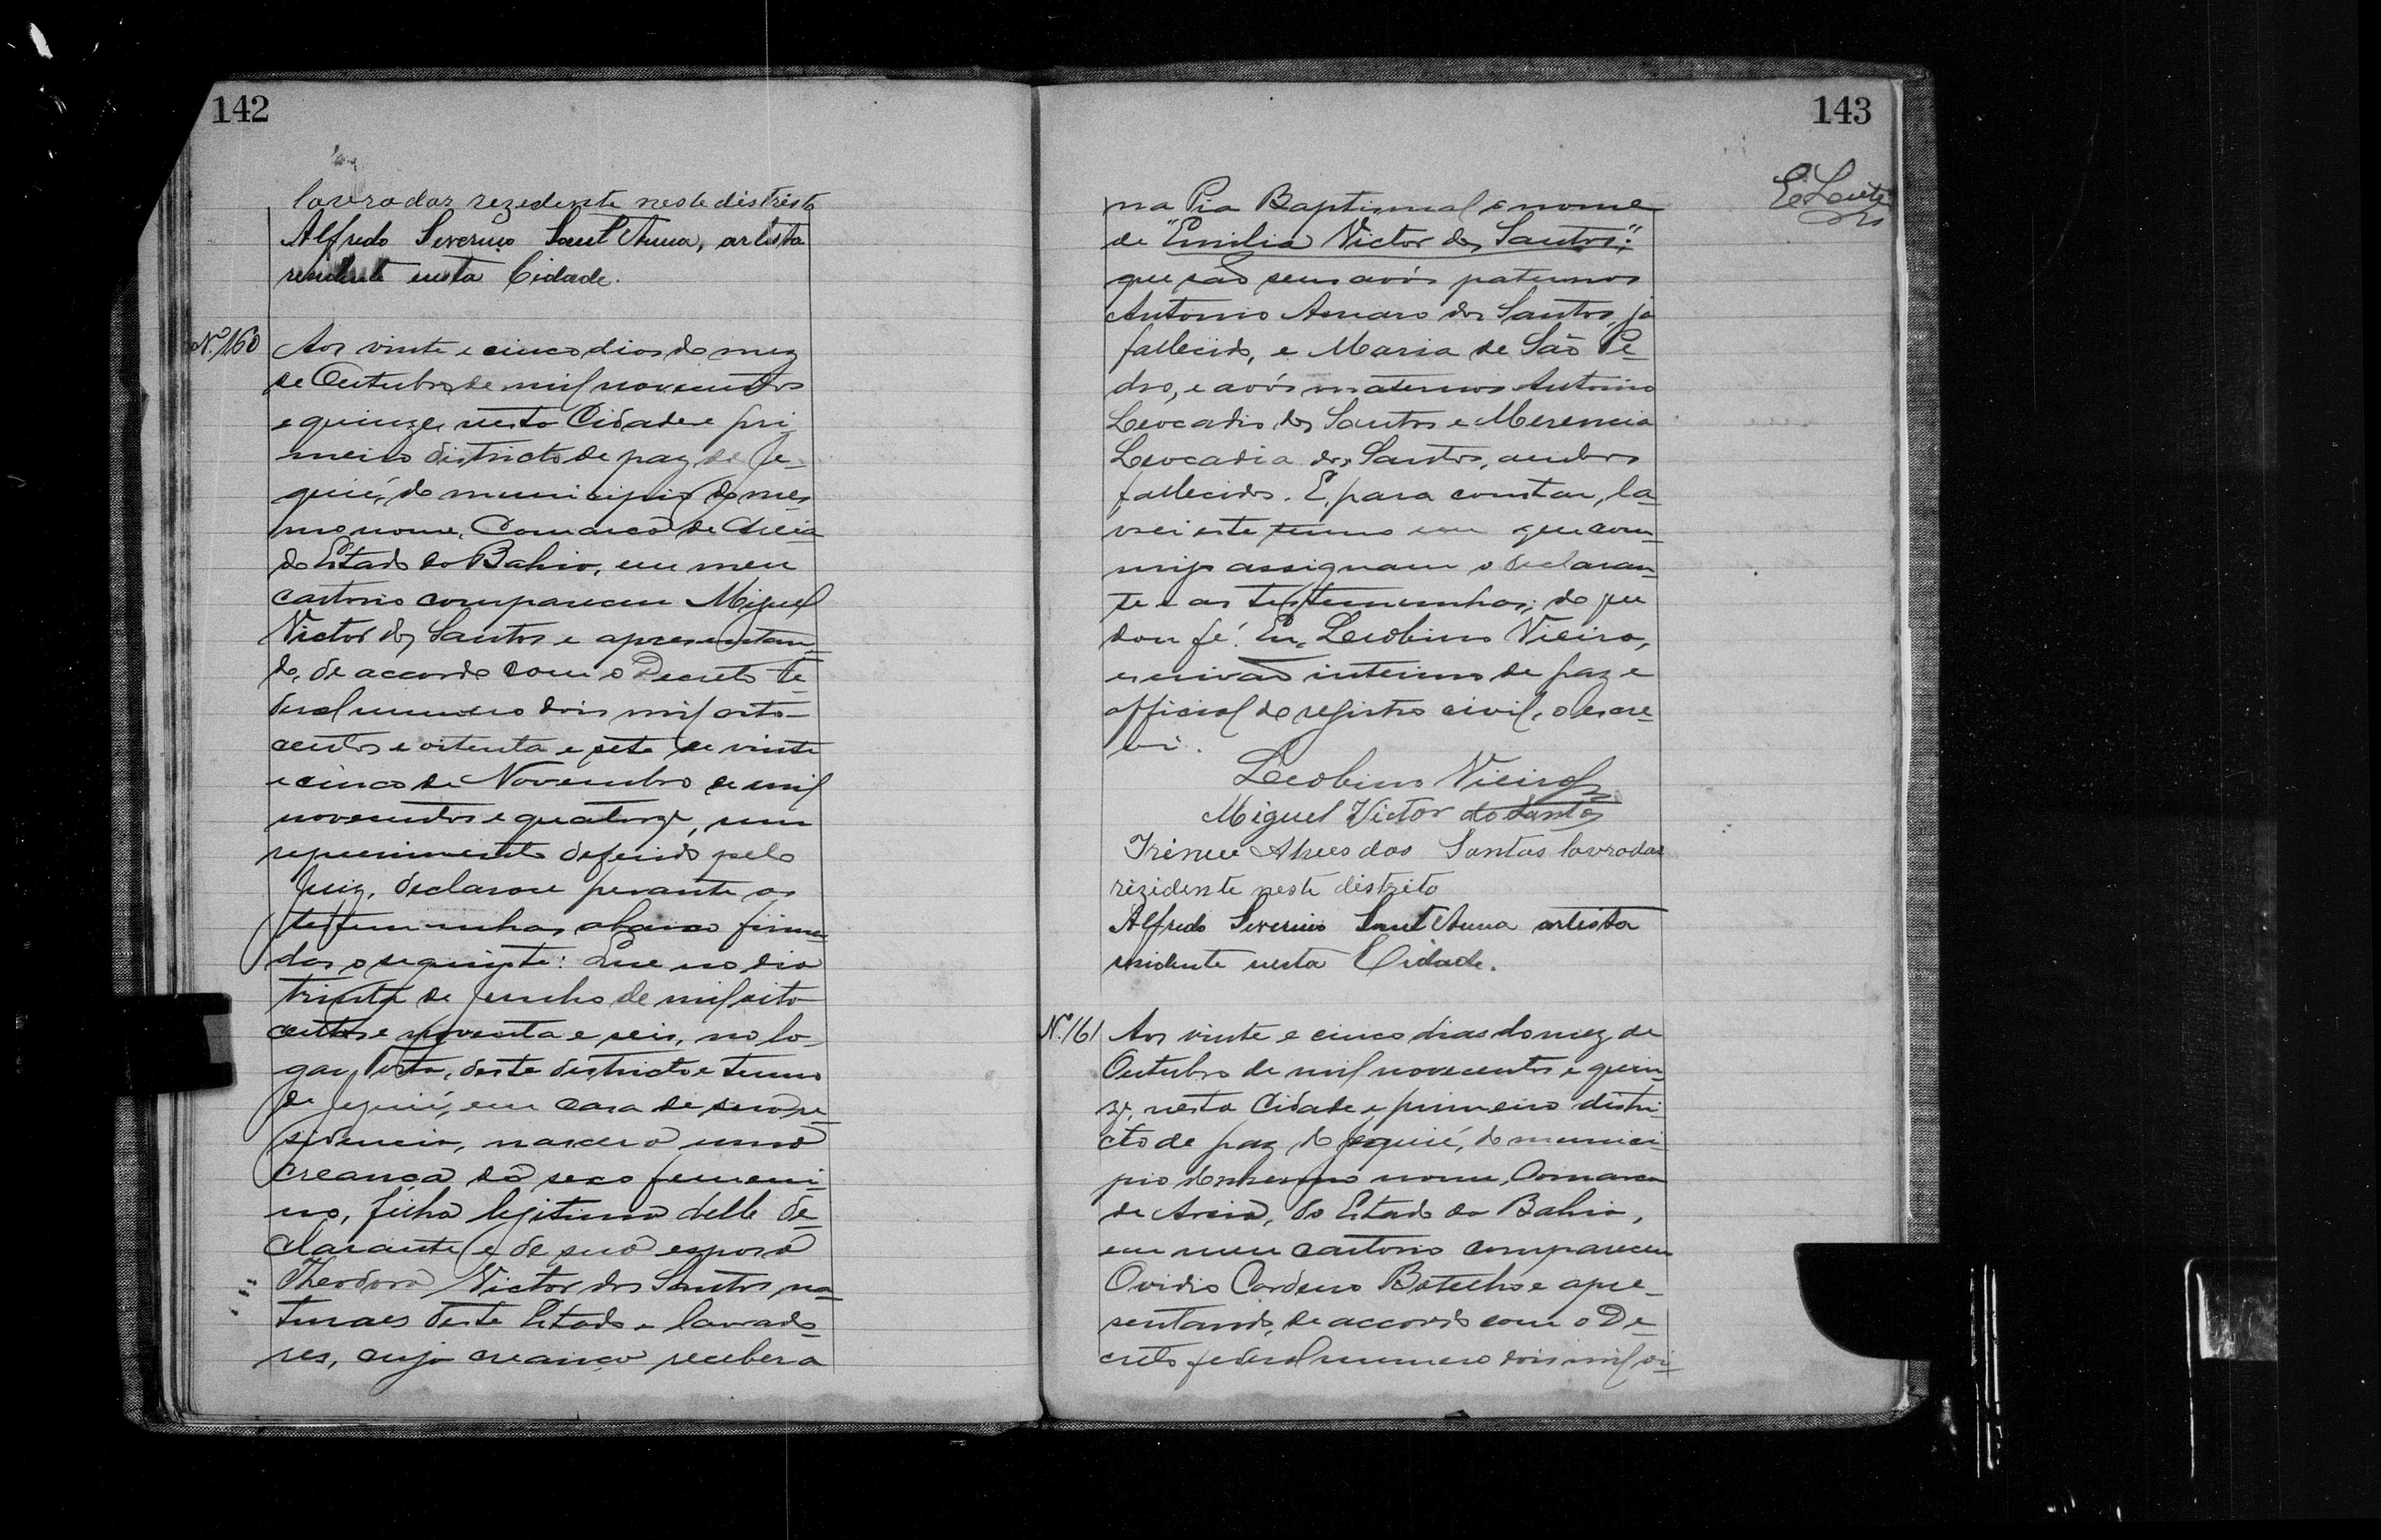 142
lavrador rezedente neste distristo
Alfredo Severino Sant'Anna, artista
residente nesta Cidade.
Nº 160
Aos vinte e cinco dias do mez
de Outubro de mil novecentos
e quinze, nesta Cidade e pri-
meiro districto de paz de Je-
quié, do municipio do mes-
mo nome, Comarca de Areia
do Estado da Bahia, em meu
cartorio compareceu Miguel
Victor dos Santos e apresentan-
do, de accordo com o Decreto fe-
deral numero dois mil oito-
centos e oitenta e sete de vinte
e cinco de Novembro de mil
novecentos e quatorze, um
requerimento deferido pelo
Juiz, declarou perante as
testemunhas abaixo firma-
das o seguinte: Que no dia
trinta de Junho de mil oito
centos e noventa e seis, no lo-
gar, deste districto e termo
de Jequié, em casa de sua re-
sidencia, nascera uma
creança do sexo femeni-
no, filha legitima delle de-
clarante e de sua esposa
Theodora Victor dos Santos, na-
turaes deste Estado e lavrado-
res, cuja creança recebera
143
na Pia Baptismal o nome
de "Emilia Victor dos Santos";
que são seus avós paternos
Antonio Amaro dos Santos, ja
fallecido, e Maria de São Pe-
dro, e avós maternos Antonio
Leocadio dos Santos e Merencia
Leocadia dos Santos, ambos
fallecidos. E, para constar, la-
vrei este termo em que com-
migo assignam o declaran-
te e as testemunhas; do que
dou fé. Eu, Leobino Vieira,
escrivão interino de paz e
official do registro civil, o escre-
vi.
Leobino Vieira
Miguel Victor do Santos
Irineu Alves dos Santos lavrador
rezidente neste distrito
Alfredo Severino Sant'Anna artista
residente nesta Cidade.
Nº 161
Aos vinte e cinco dias do mez de
Outubro de mil novecentos e quin-
ze, nesta Cidade e primeiro distri-
cto de paz de Jequié, do munici-
pio do mesmo nome, Comarca
de Areia, do Estado da Bahia,
em meu cartorio compareceu
Ovidio Cardoso Botelho e apre-
sentando, de accordo com o De-
creto federal numero dois mil oi-